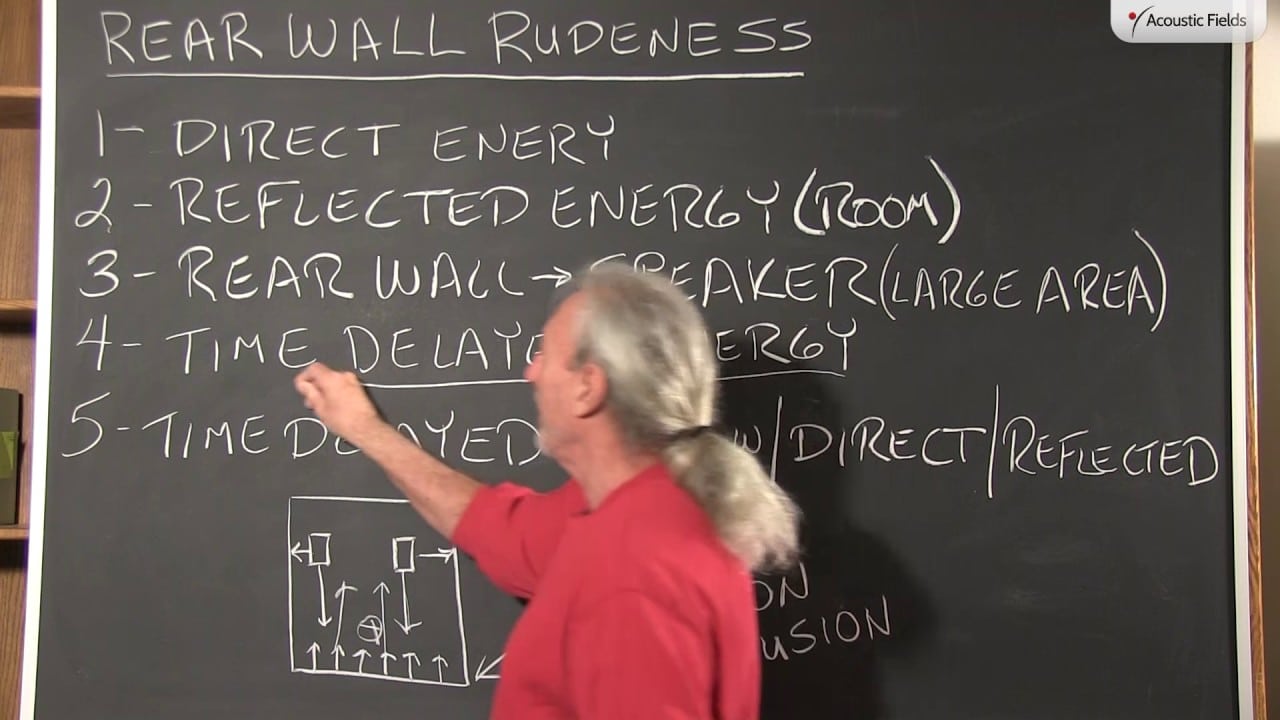 Acoustic Fields
REAR WALL RUDENESS
1- DIRECT ENERY
2- REFLECTED ENERGY (ROOM)
3- REAR WALL → SPEAKER (LARGE AREA)
4- TIME
5- TIME DELAYED W/DIRECT/REFLECTED